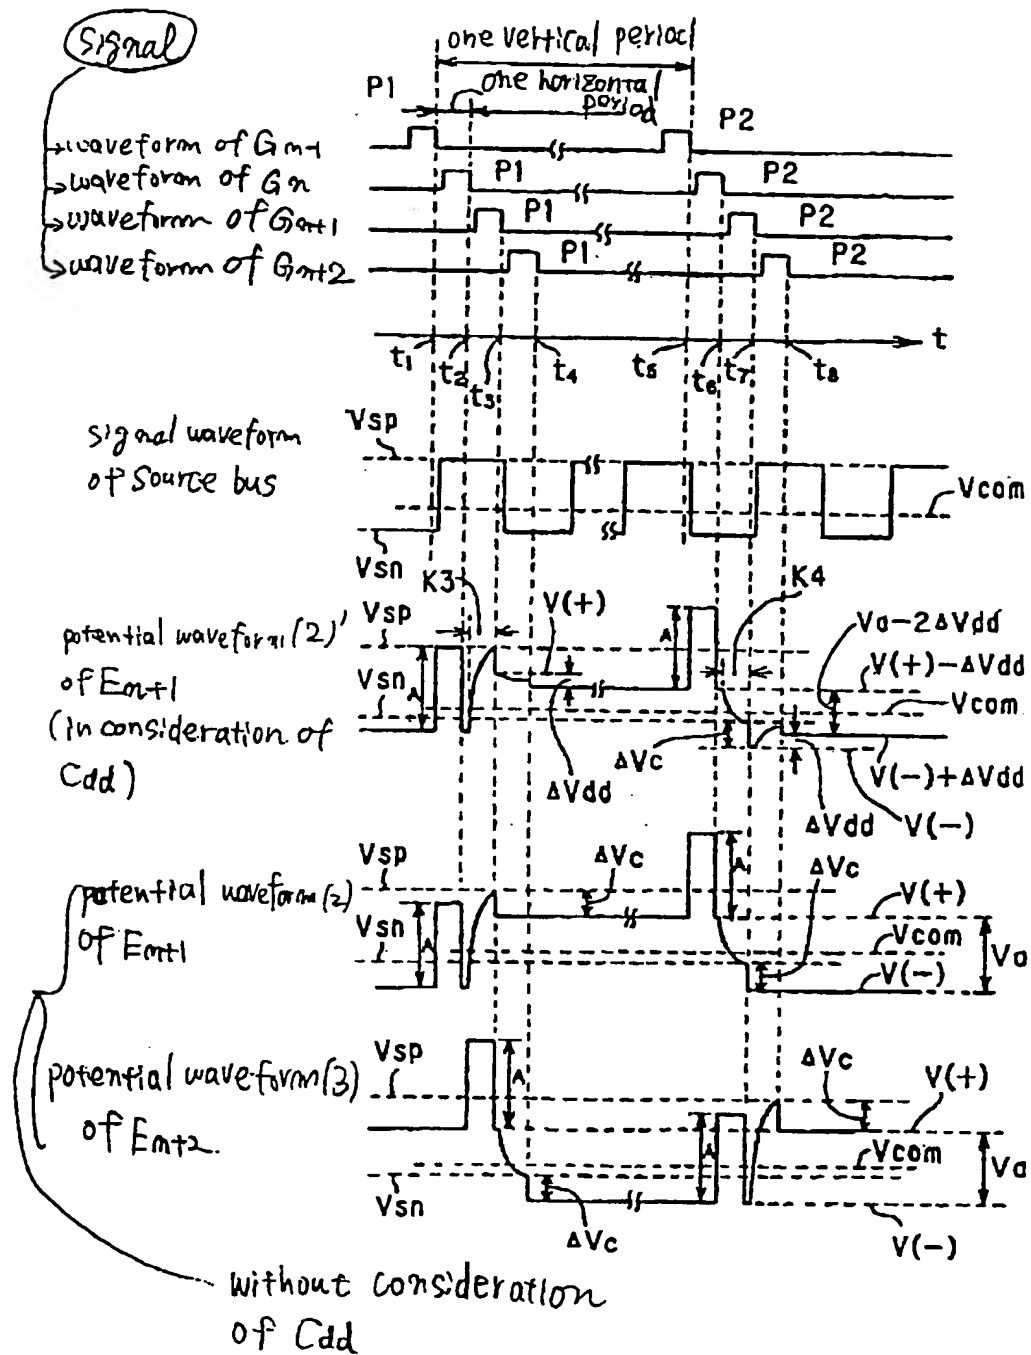 signal
one vertical period
P1
one horizontal
period
P2
waveform of Gn-1
waveform of Gn
P1
P2
waveform of Gn+1
P1
P2
waveform of Gn+2
P1
P2
t1
t2
t3
t4
t5
t6
t7
t8
t
signal waveform
of source bus
Vsp
Vcom
Vsn
K3
K4
potential waveform (2)'
of Em+1
(in consideration of
Cdd)
Vsp
V(+)
A
A
Va-2ΔVdd
V(+)-ΔVdd
Vsn
Vcom
ΔVc
ΔVdd
V(-)+ΔVdd
ΔVdd
V(-)
potential waveform (2)
of Em+1
Vsp
ΔVc
A
ΔVc
V(+)
Vsn
A
Vcom
Va
V(-)
potential waveform (3)
of Em+2.
Vsp
A
ΔVc
V(+)
A
Vcom
Va
Vsn
ΔVc
V(-)
without consideration
of Cdd